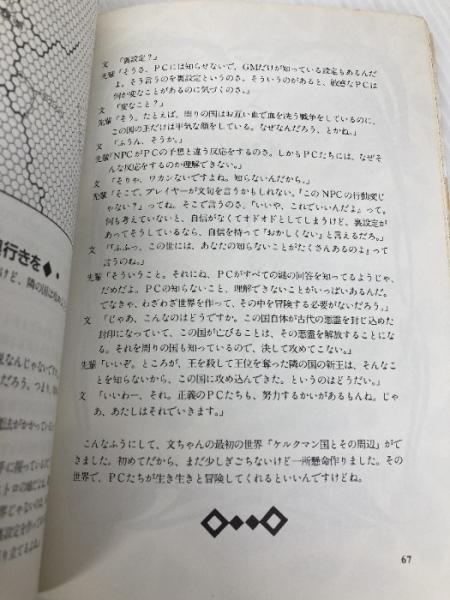 文　「裏設定？」
先輩「そうさ、ＰＣには知らせないで、ＧＭだけが知っている設定もあるんだ
よ。そう言うのを裏設定というのさ。そういうのがあると、敏感なＰＣは
何か変なことがあるのに気づくのさ。」
文　「変なこと？」
先輩「そう。たとえば、周りの国はお互い血で血を洗う戦争をしているのに、
この国の王だけは平気な顔をしている。なぜなんだろう、とかね。」
文　「ふうん、そうか。」
先輩「ＮＰＣがＰＣの予想と違う反応をするのさ。しかもＰＣたちには、なぜそ
んな反応をするのか理解できない。」
文　「そりゃ、ワカンないですよね。知らないんだから。」
先輩「そこで、プレイヤーが文句を言うかもしれない。『このＮＰＣの行動変じ
ゃない？』ってね。そこで言うのさ、『いいや、これでいいんだよ』って。
何も考えていないと、自信がなくてオドオドとしてしまうけど、裏設定が
あってそうしているなら、自信を持って『おかしくない』と言えるだろ。」
文　「『ふふっ、この世には、あなたの知らないことがたくさんあるのよ』って
言うのね。」
先輩「そういうこと。それにね、ＰＣがすべての謎の回答を知ってるようじゃ、
だめだよ。ＰＣの知らないこと、理解できないことがいっぱいあるんだ。
でなきゃ、わざわざ世界を作って、その中を冒険する必要がないだろう。」
文　「じゃあ、こんなのはどうですか。この国自体が古代の悪霊を封じ込めた
封印になっていて、この国が亡びることは、その悪霊を解放することにな
る。それを周りの国も知っているので、決して攻めてこない。」
先輩「いいぞ。ところが、王を殺して王位を奪った隣の国の新王は、そんなこ
とを知らないから、この国に攻め込んできた。というのはどうだい。」
文　「いいわー、それ。正義のＰＣたちも、努力するかいがあるもんね。じゃ
あ、あたしはそれでいきます。」
こんなふうにして、文ちゃんの最初の世界「ケルクマン国とその周辺」がで
きました。初めてだから、まだ少しぎごちないけど一所懸命作りました。その
世界で、ＰＣたちが生き生きと冒険してくれるといいんですけどね。
67
行きを
けど、隣の国は